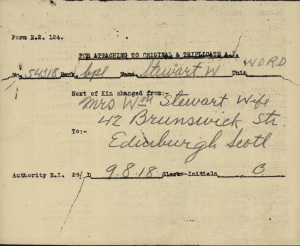 Form R.2. 124.
FOR ATTACHING TO ORIGINAL & TRIPLICATE A.F.
No. 54318 Rank Cpl Name Stewart. W Unit WORD
Next of Kin changed from:-
Mrs Wm Stewart Wife
42 Brunswick Str.
To:-
Edinburgh Scotl
Authority R.I. 29/ D 9.8.18 Clerks Initials